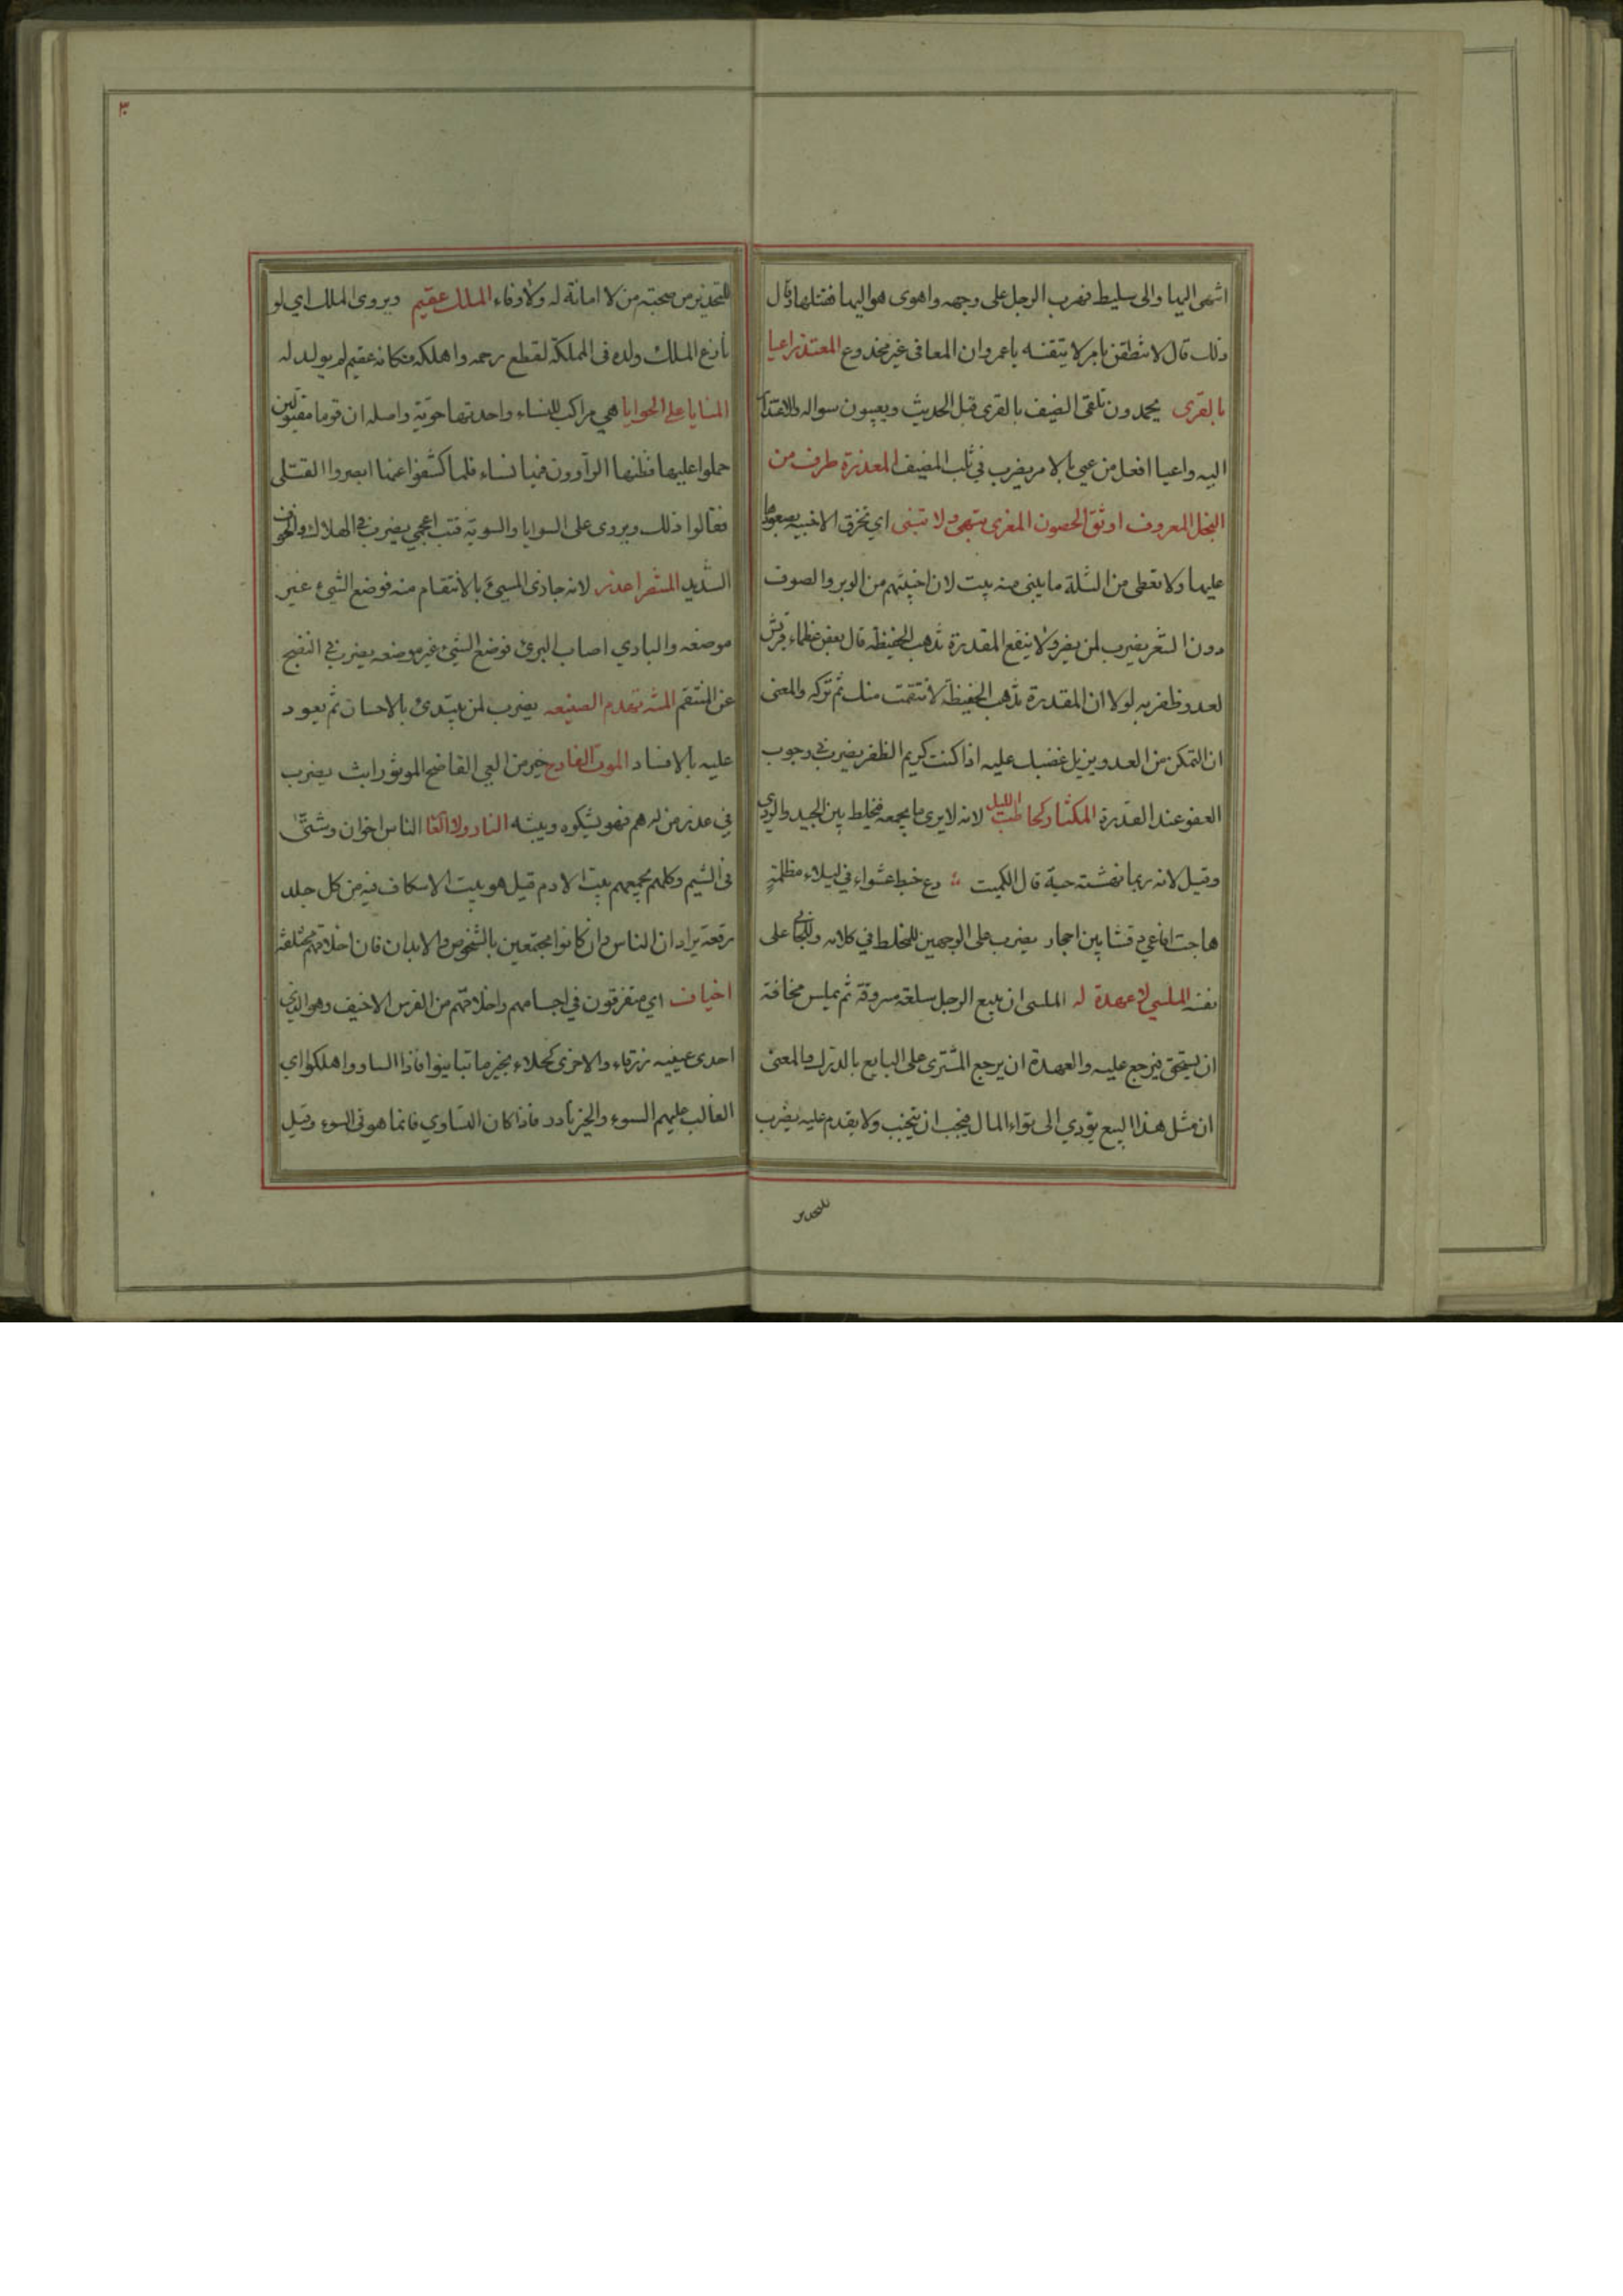 ٣٠
انتهى اليها والى سليط فهرب الرجل على وجهه واهوى هو اليها فقتلها وقال
ذلك قال لا تنطقن بامر لا تيقنه يا عمرو ان المعافى غير مخدوع المعتذر اعيا
بالقرى يحمدون تلقى الضيف بالقرى قبل الحديث ويعيبون سواله والاعتذار
اليه واعيا افعل من عيي بالامر يضرب في ثلب المضيف المعذرة طرف من
البخل المعروف اوثق الحصون المعزى تبهى ولا تبنى اي تخرق الاخبية بصعودها
عليها ولا تعطى من الثلة ما يبنى منه بيت لان اخبيتهم من الوبر والصوف
دون الشعر يضرب لمن يضر ولا ينفع المقدرة تذهب الحفيظة قال بعض عظماء قريش
لعدو ظفر به لولا ان المقدرة تذهب الحفيظة لانتقمت منك ثم تركه والمعنى
ان التمكن من العدو يزيل غضبك عليه اذا كنت كريم الظفر يضرب في وجوب
العفو عند القدرة المكثار كحاطب الليل لانه لا يرى ما يجمعه فيخلط بين الجيد والردي
وقيل لانه ربما نهشته حية قال الكميت دع خبط عشواء في ليلاء مظلمةٍ
هاجت افاعي رقشا بين احجار يضرب على الوجهين للمخلط في كلامه وللجاني على
نفسه الملسي لا عهدة له الملسى ان يبيع الرجل سلعة مسروقة ثم يملس مخافة
ان يستحق فيرجع عليه والعهدة ان يرجع المشترى على البايع بالدرك والمعنى
ان مثل هذا البيع يؤدي الى تواء المال فيجب ان يتجنب ولا يقدم عليه يضرب
للتحذير
للتحذير من صحبته من لا امانة له ولا وفاء الملك عقيم ويروى الملك اي لو
نازع الملك ولده في المملكة لقطع رحمه واهلكه فكانه عقيم لم يولد له
المنايا على الحوايا هي مراكب للنساء واحدتها حوية واصله ان قوما مقتولين
حملوا عليها فظنها الراوون فيها نساء فلما كشفوا عنها ابصروا القتلى
فقالوا ذلك ويروى على السوايا والسوية قتب اعجمي يضرب في الهلاك والخوف
الشديد المنتصر اعذر لانه جازى المسيئ بالانتقام منه فوضع الشيئ غير
موضعه والبادي اصاب البرئ فوضع الشيئ غير موضعه يضرب في النضح
عن المنتقم المنة تهدم الصنيعه يضرب لمن يبتدئ بالاحسان ثم يعود
عليه بالافساد الموت الفادح خير من العي الفاضح الموثور ابث يضرب
في عذر من له هم فهو يشكوه ويبثه النار ولا الناس اخوان وشتىّ
في الشيم وكلهم يجمعهم بيت الادم قيل هو بيت الاسكاف فيه من كل جلد
رقعة يراد ان الناس وان كانوا مجتمعين بالشخوص والابدان فان اخلاقهم مختلفة
اخياف اي متفرقون في اجسامهم واخلاقهم من الفرس الاخيف وهو الذي
احدى عينيه زرقاء والاخرى كحلاء بخير ما تباينوا فاذا تساووا هلكوا اي
الغالب عليهم السوء والخير نادر فاذا كان التساوي فانما هو في السوء وقيل